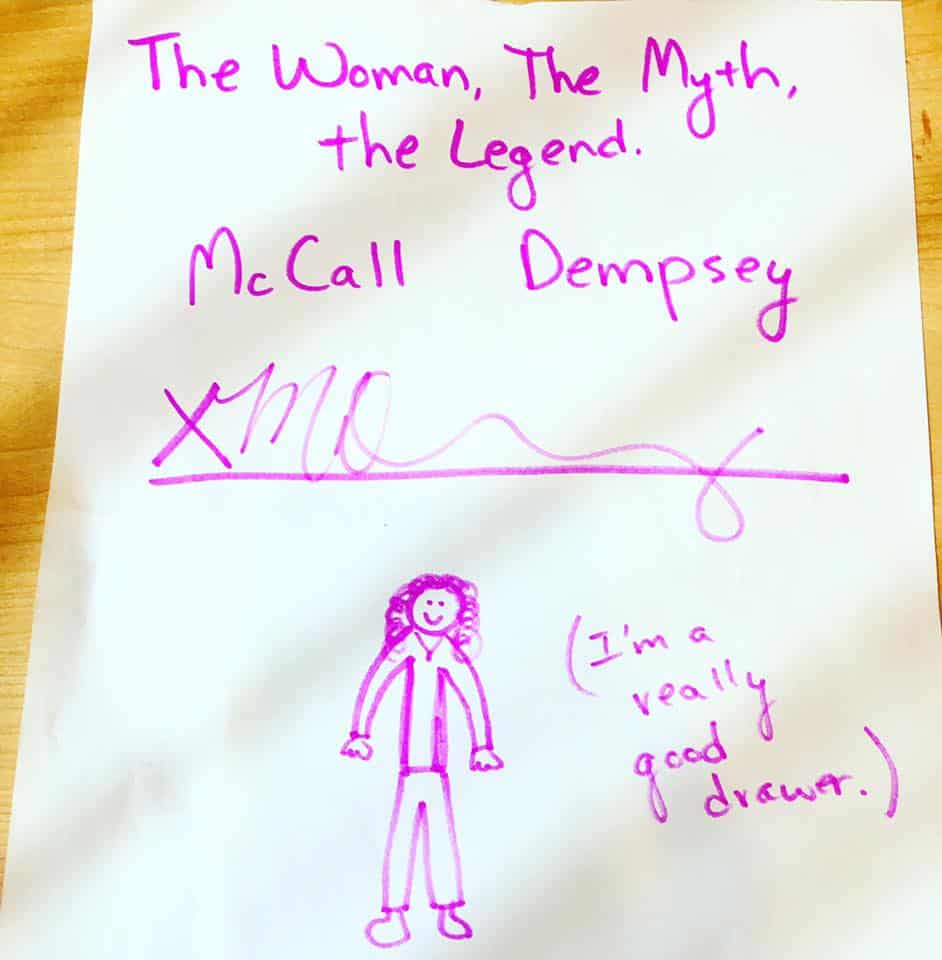 The Woman, The Myth,
the Legend.
McCall Dempsey
X
(I'm a
really
good
drawer.)